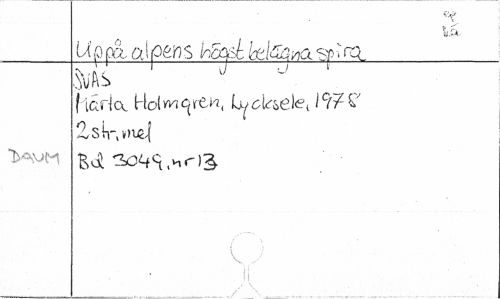 Uppå alpens högst belägna spira
SVAS
Märta Holmgren, Lycksele, 1978
2 str, mel
DAUM Bd 3049, nr 13